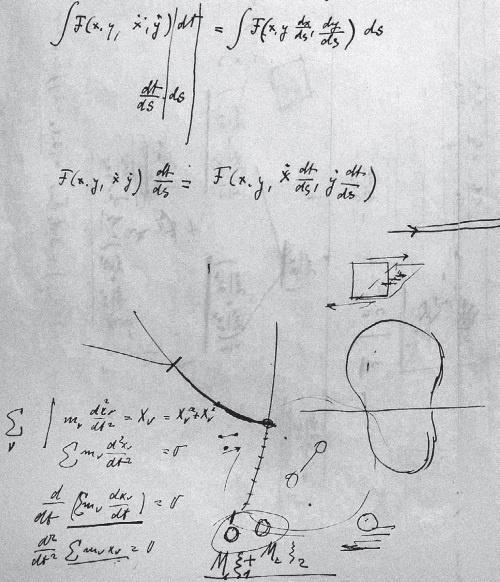 ∫ F(x, y, ẋ, ẏ) dt = ∫ F(x y dx/ds, dy/ds) ds
dt/ds ds
F(x, y, ẋ ẏ) dt/ds = F(x, y, ẋ dt/ds, ẏ dt/ds)
∑ν | mν d²xν/dt² = Xν = Xνᵃ + Xνⁱ
∑ mν d²xν/dt² = 0
d/dt (∑ mν dxν/dt) = 0
d²/dt² ∑ mν xν = 0
M₁ ξ₁ + M₂ ξ₂